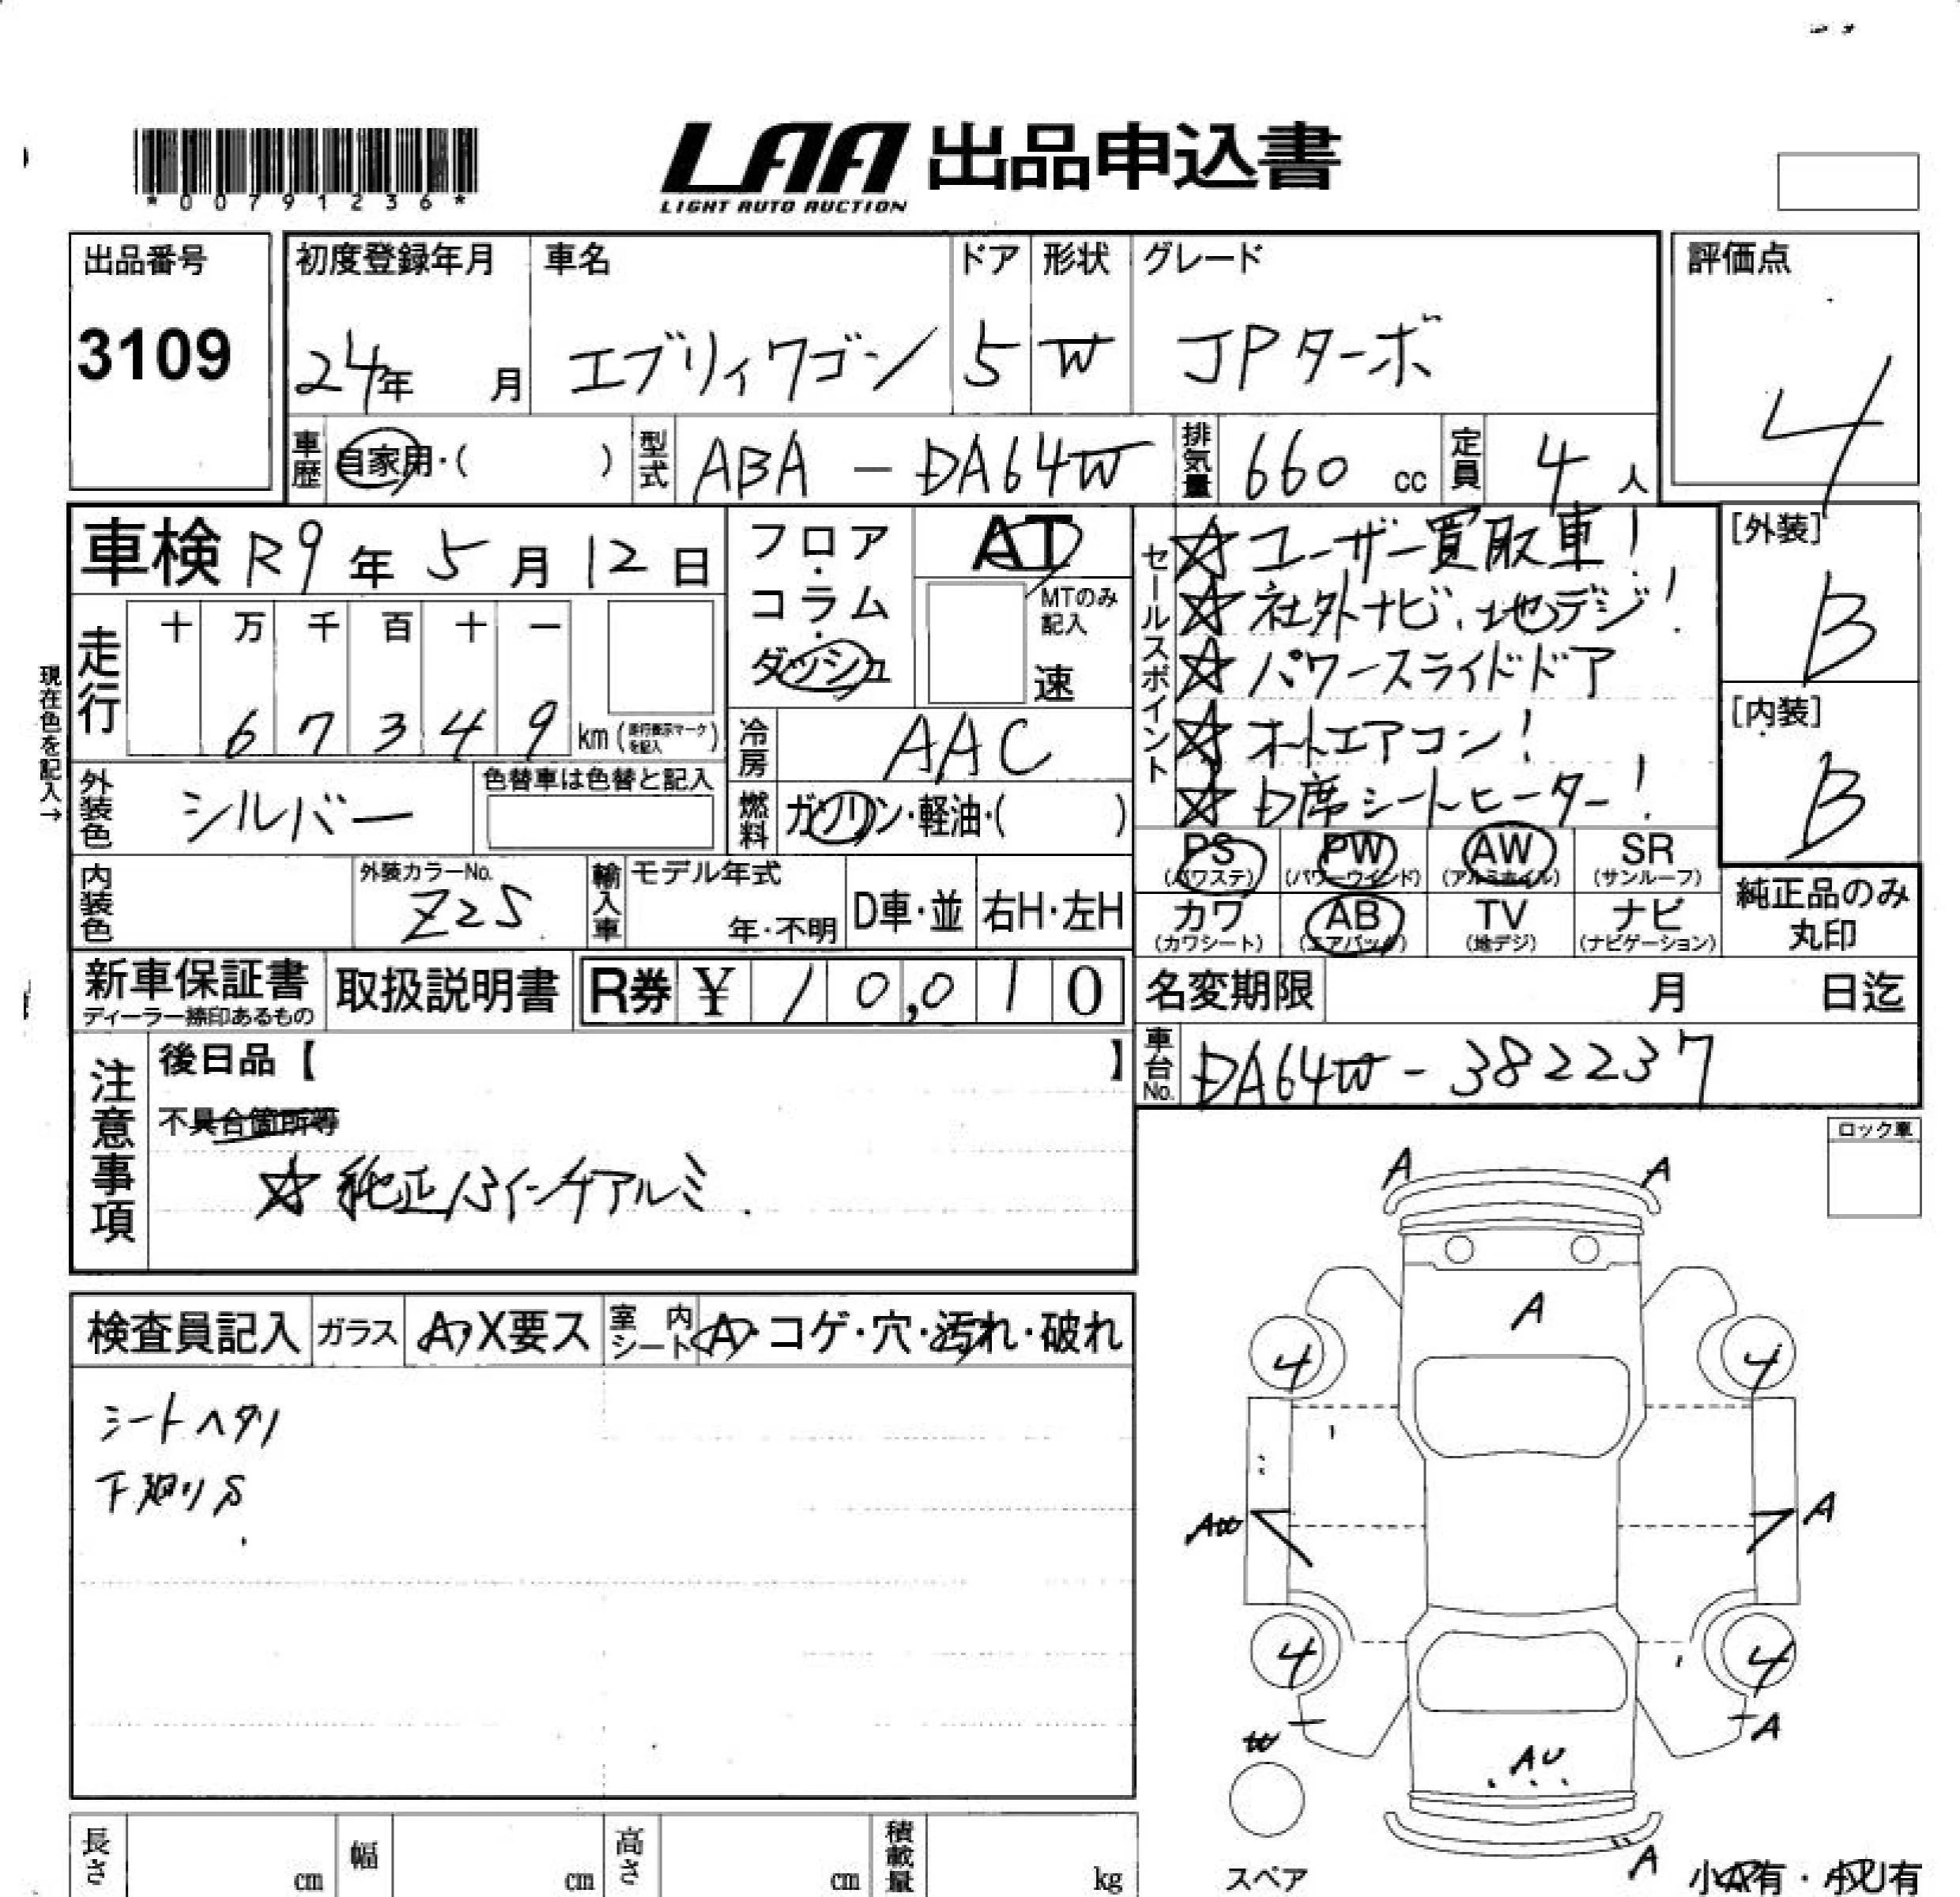 *00791236*
LAA 出品申込書
LIGHT AUTO AUCTION
出品番号
3109
初度登録年月
24年 月
車名
エブリィワゴン
ドア
5
形状
W
グレード
JPターボ
評価点
4
車歴 自家用・( )
型式 ABA - DA64W
排気量 660 cc
定員 4 人
車検 R9年 5月 12日
フロア・コラム・ダッシュ
AT
MTのみ記入
速
セールスポイント
☆ユーザー買取車!
☆社外ナビ、地デジ!
☆パワースライドドア
☆オートエアコン!
☆D席シートヒーター!
[外装]
B
[内装]
B
現在色を記入→
走行
十 万 千 百 十 一
6 7 3 4 9 km (走行表示マークを記入)
冷房 AAC
外装色 シルバー
色替車は色替と記入
燃料 ガソリン・軽油・( )
PS (パワステ)
PW (パワーウインド)
AW (アルミホイル)
SR (サンルーフ)
カワ (カワシート)
AB (エアバッグ)
TV (地デジ)
ナビ (ナビゲーション)
純正品のみ丸印
内装色
外装カラーNo.
Z2S
輸入車
モデル年式
年・不明
D車・並
右H・左H
新車保証書
ディーラー捺印あるもの
取扱説明書
R券 ¥ 10,010
名変期限 月 日迄
車台No. DA64W-382237
注意事項
後日品【 】
不具合箇所等
☆純正13インチアルミ
ロック車
検査員記入
ガラス A・X要ス
室内シート A・コゲ・穴・汚れ・破れ
シートヘタリ
下廻りS
A A
A
4 4
AW A
4 4
W A
AU
A
スペア
小AP有・小U有
長さ cm
幅 cm
高さ cm
積載量 kg